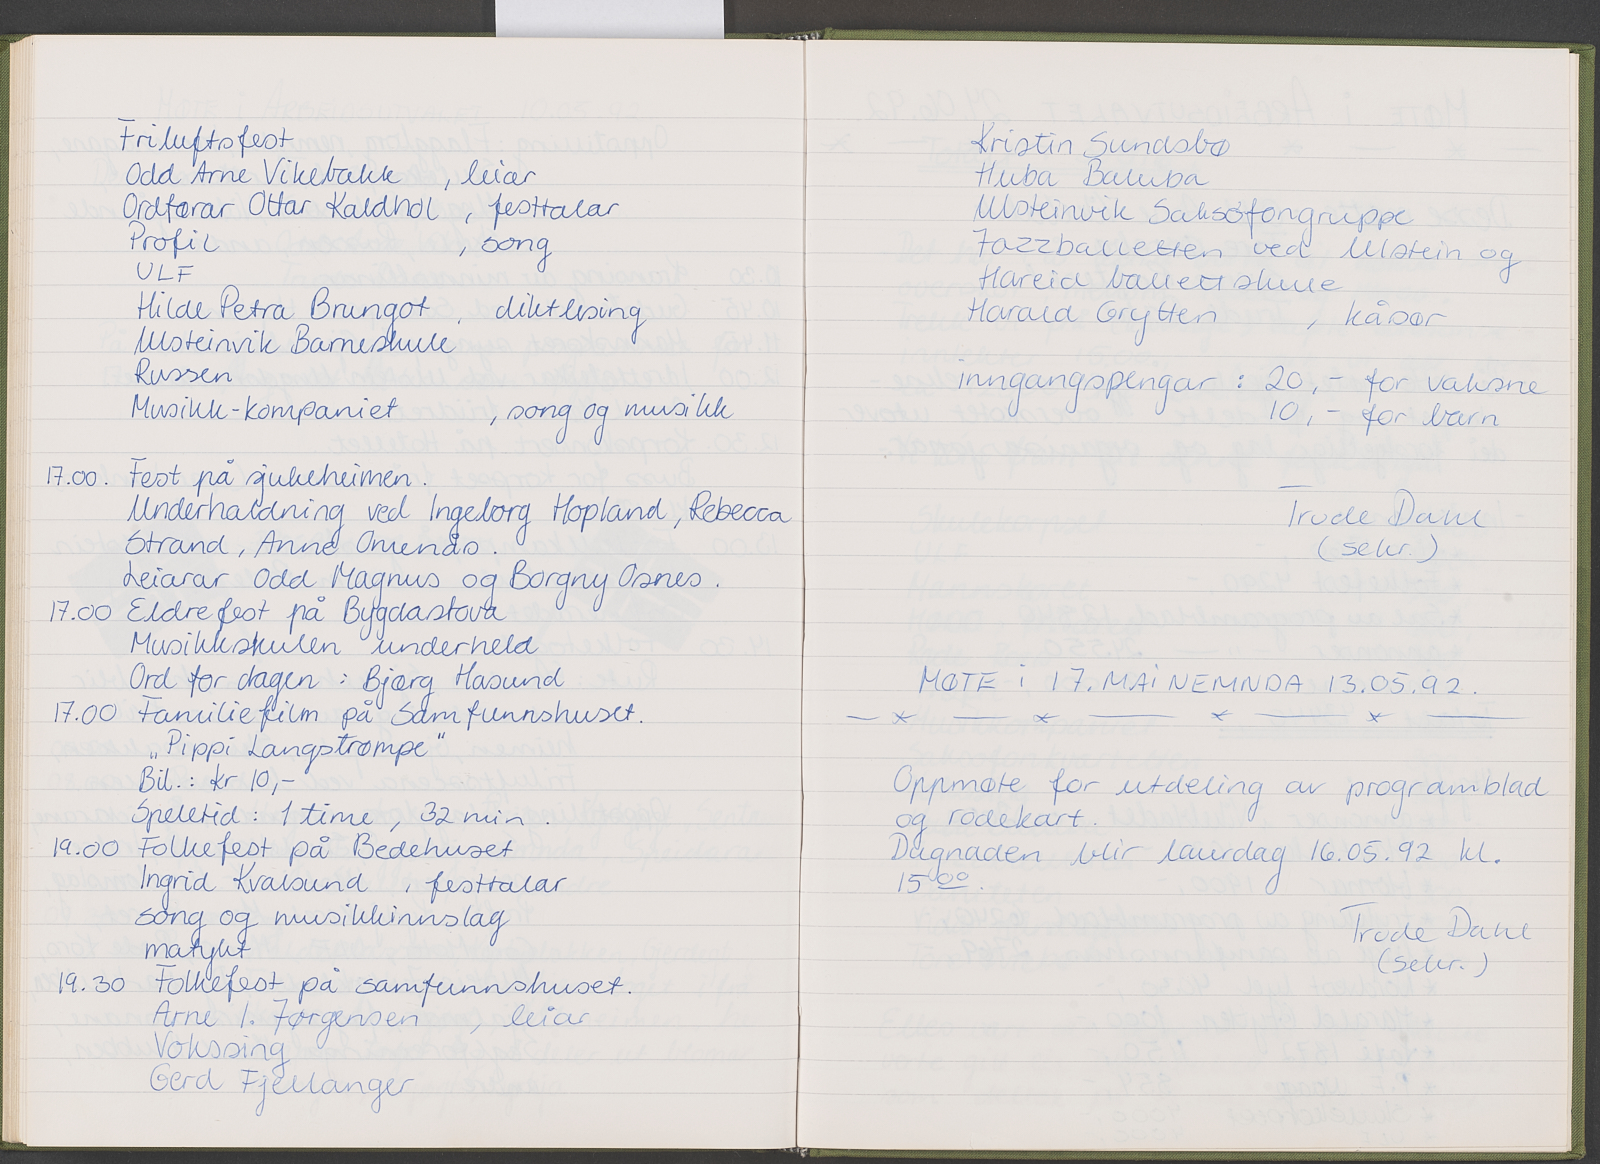 Friluftsfest
Odd Arne Vikebakk , leiar
Ordførar Ottar Kaldhol , festtalar
Profil , song
ULF
Hilde Petra Brungot , diktlesing
Ulsteinvik Barneskule
Russen
Musikk-kompaniet , song og musikk
17.00. Fest på sjukeheimen.
Underhaldning ved Ingeborg Hopland, Rebecca
Strand, Anne Omenås.
Leiarar Odd Magnus og Borgny Osnes.
17.00 Eldrefest på Bygdastova
Musikkskulen underheld
Ord for dagen : Bjørg Hasund
17.00 Familiefilm på Samfunnshuset.
„Pippi Langstrømpe"
Bil.: kr 10,-
Speletid : 1 time, 32 min.
19.00 Folkefest på Bedehuset
Ingrid Kvalsund , festtalar
song og musikkinnslag
matykt
19.30 Folkefest på samfunnshuset.
Arne I. Jørgensen , leiar
Vokssing
Gerd Fjellanger
Kristin Sundsbø
Huba Baluba
Ulsteinvik Saksofongruppe
Jazzballetten ved Ulstein og
Hareid ballettskule
Harald Grytten , kåsør
inngangspengar : 20,- for vaksne
10,- for barn
Trude Dahl
(sekr.)
MØTE i 17. MAi NEMNDA 13.05.92.
Oppmøte for utdeling av programblad
og rodekart.
Dugnaden blir laurdag 16.05.92 kl.
15 00.
Trude Dahl
(sekr.)